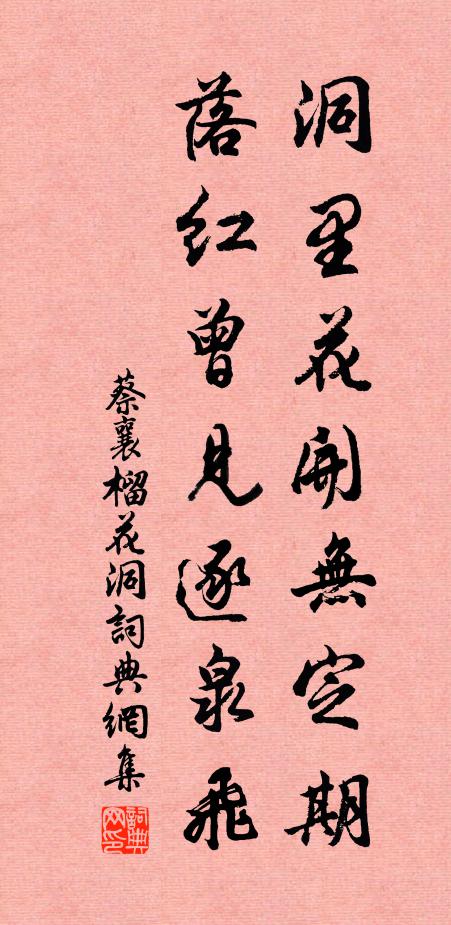 洞里花開無定期
落红曾見逐泉飛
蔡襄榴花洞詞典網集
詞典网印